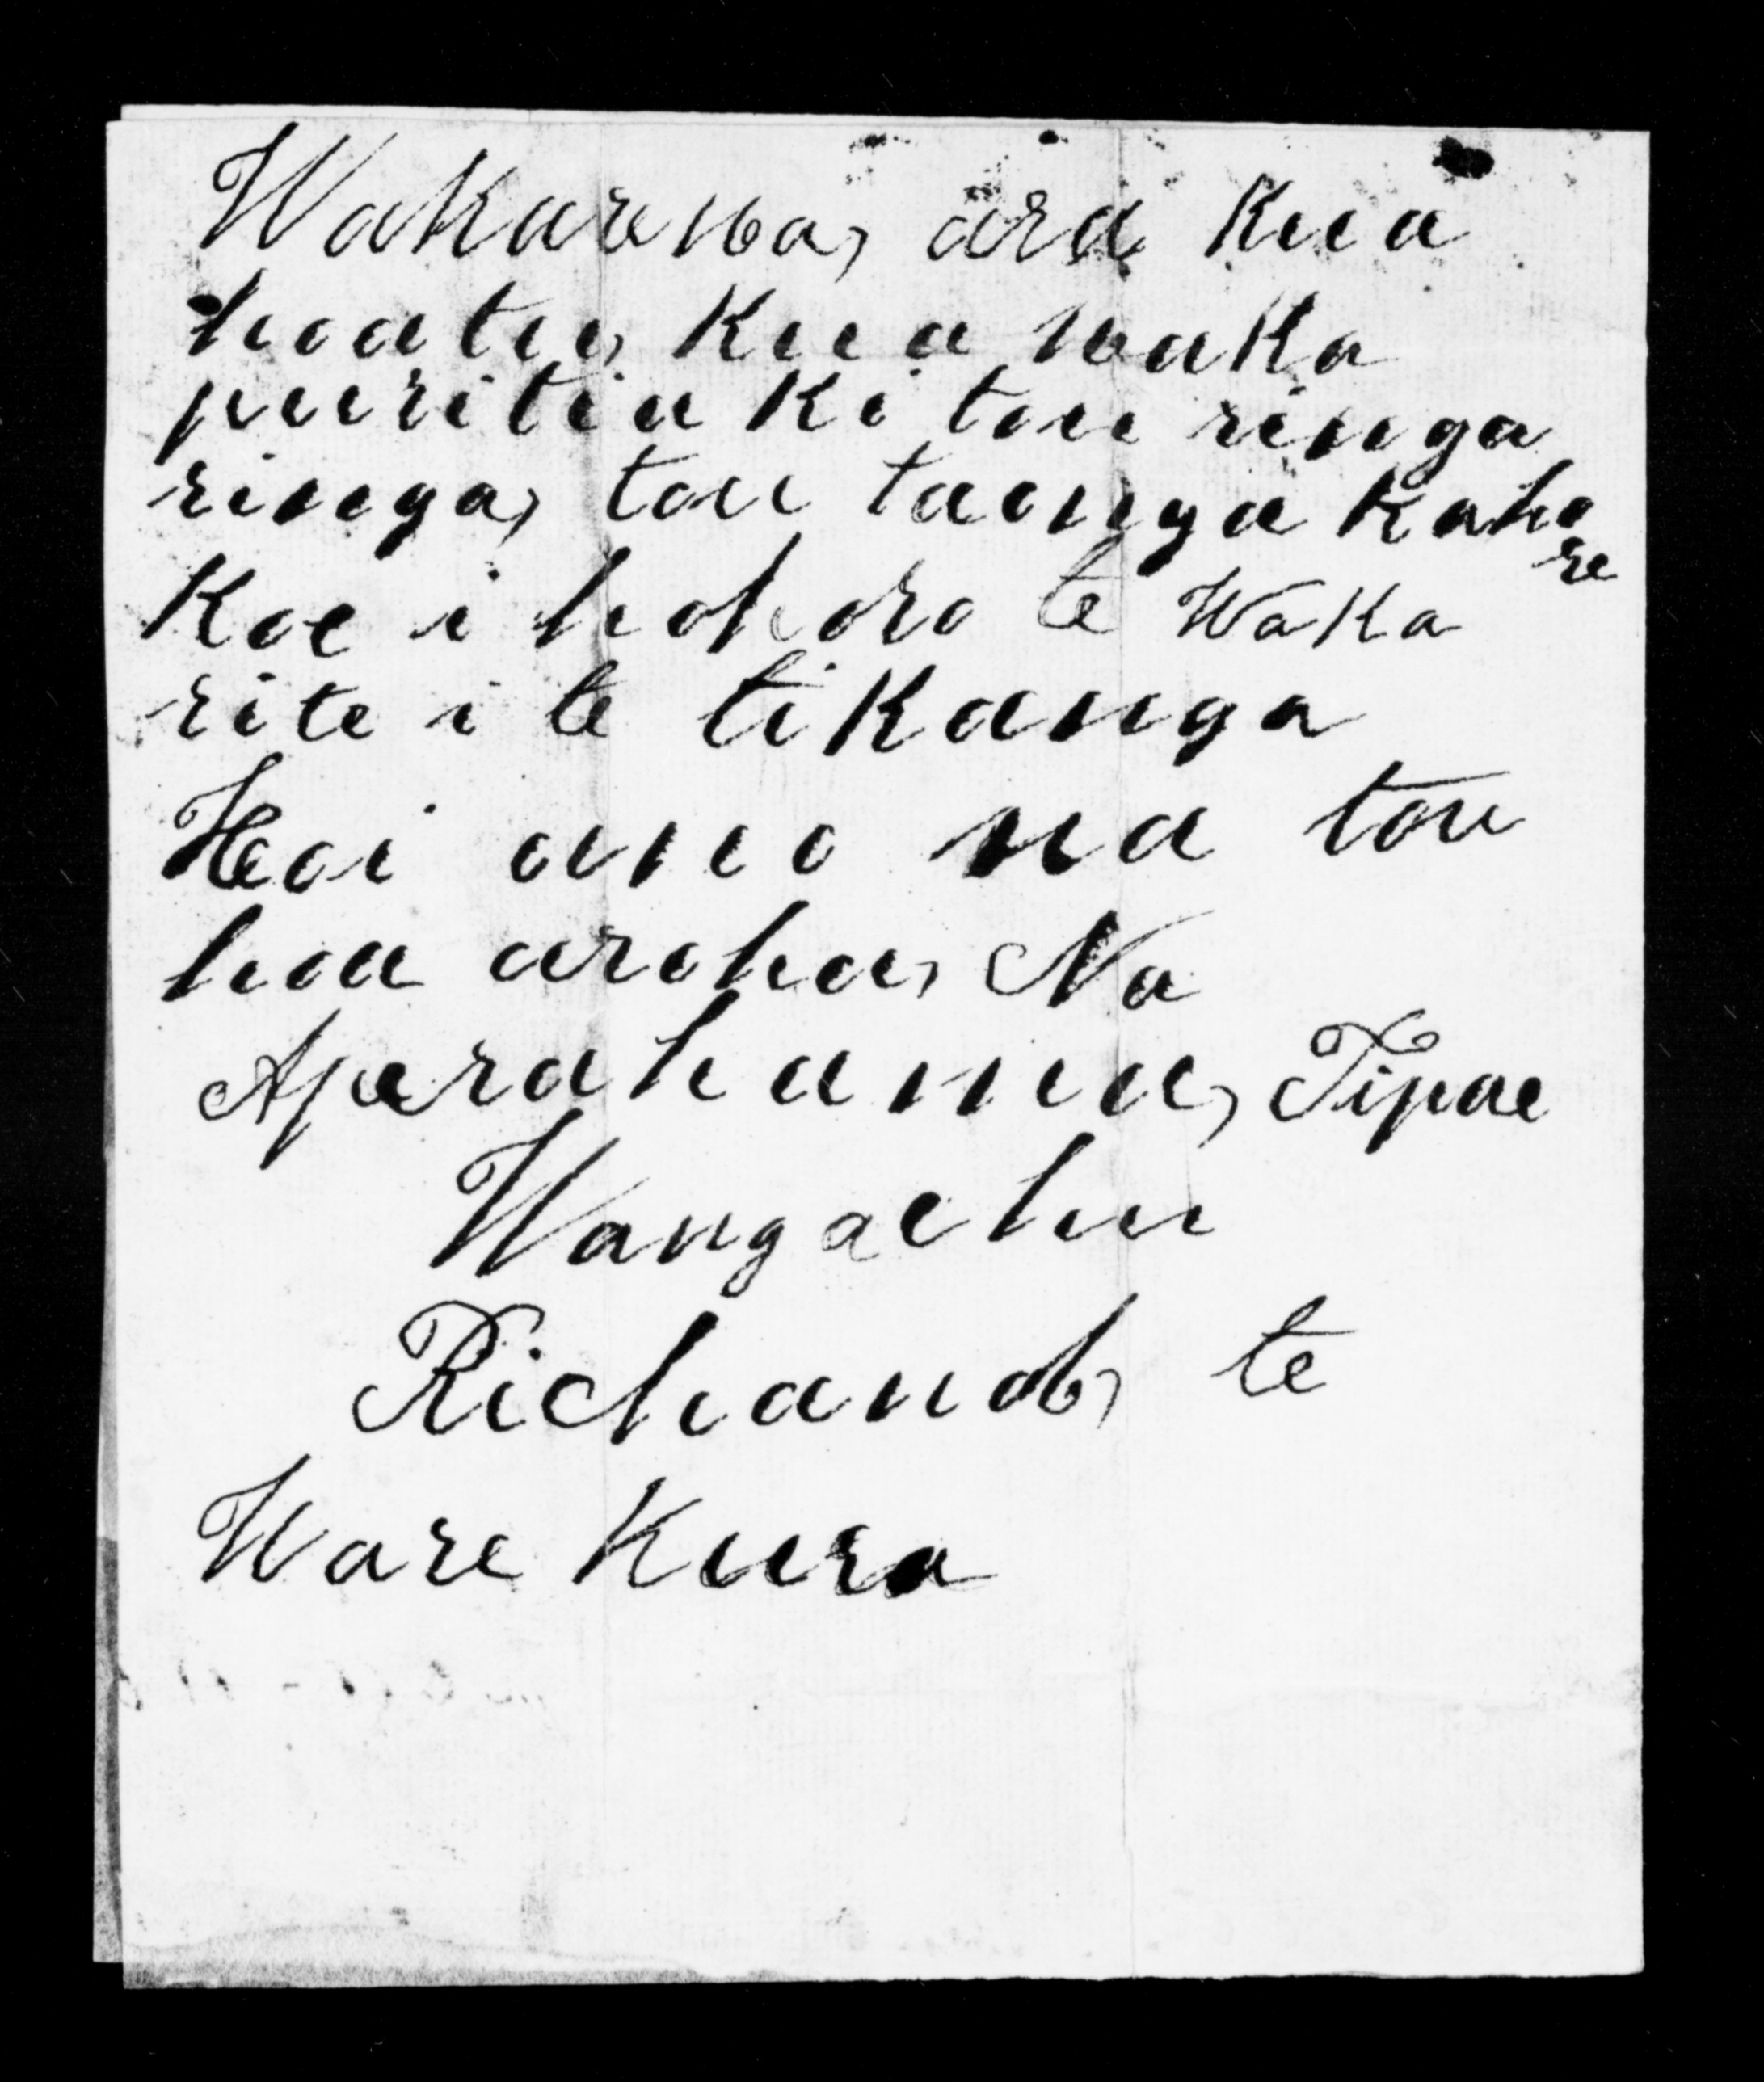 Wakarewa, ara kua
hoatu, kua waka
puuritia ki tou ringa
ringa, tou taonga kahore
koe i hohoro te Waka
rite i te tikanga
Heoi ano na tou
hoa aroha, Na
Aperahama, Tipae
Wangaehu
Richand, te
Ware Kura